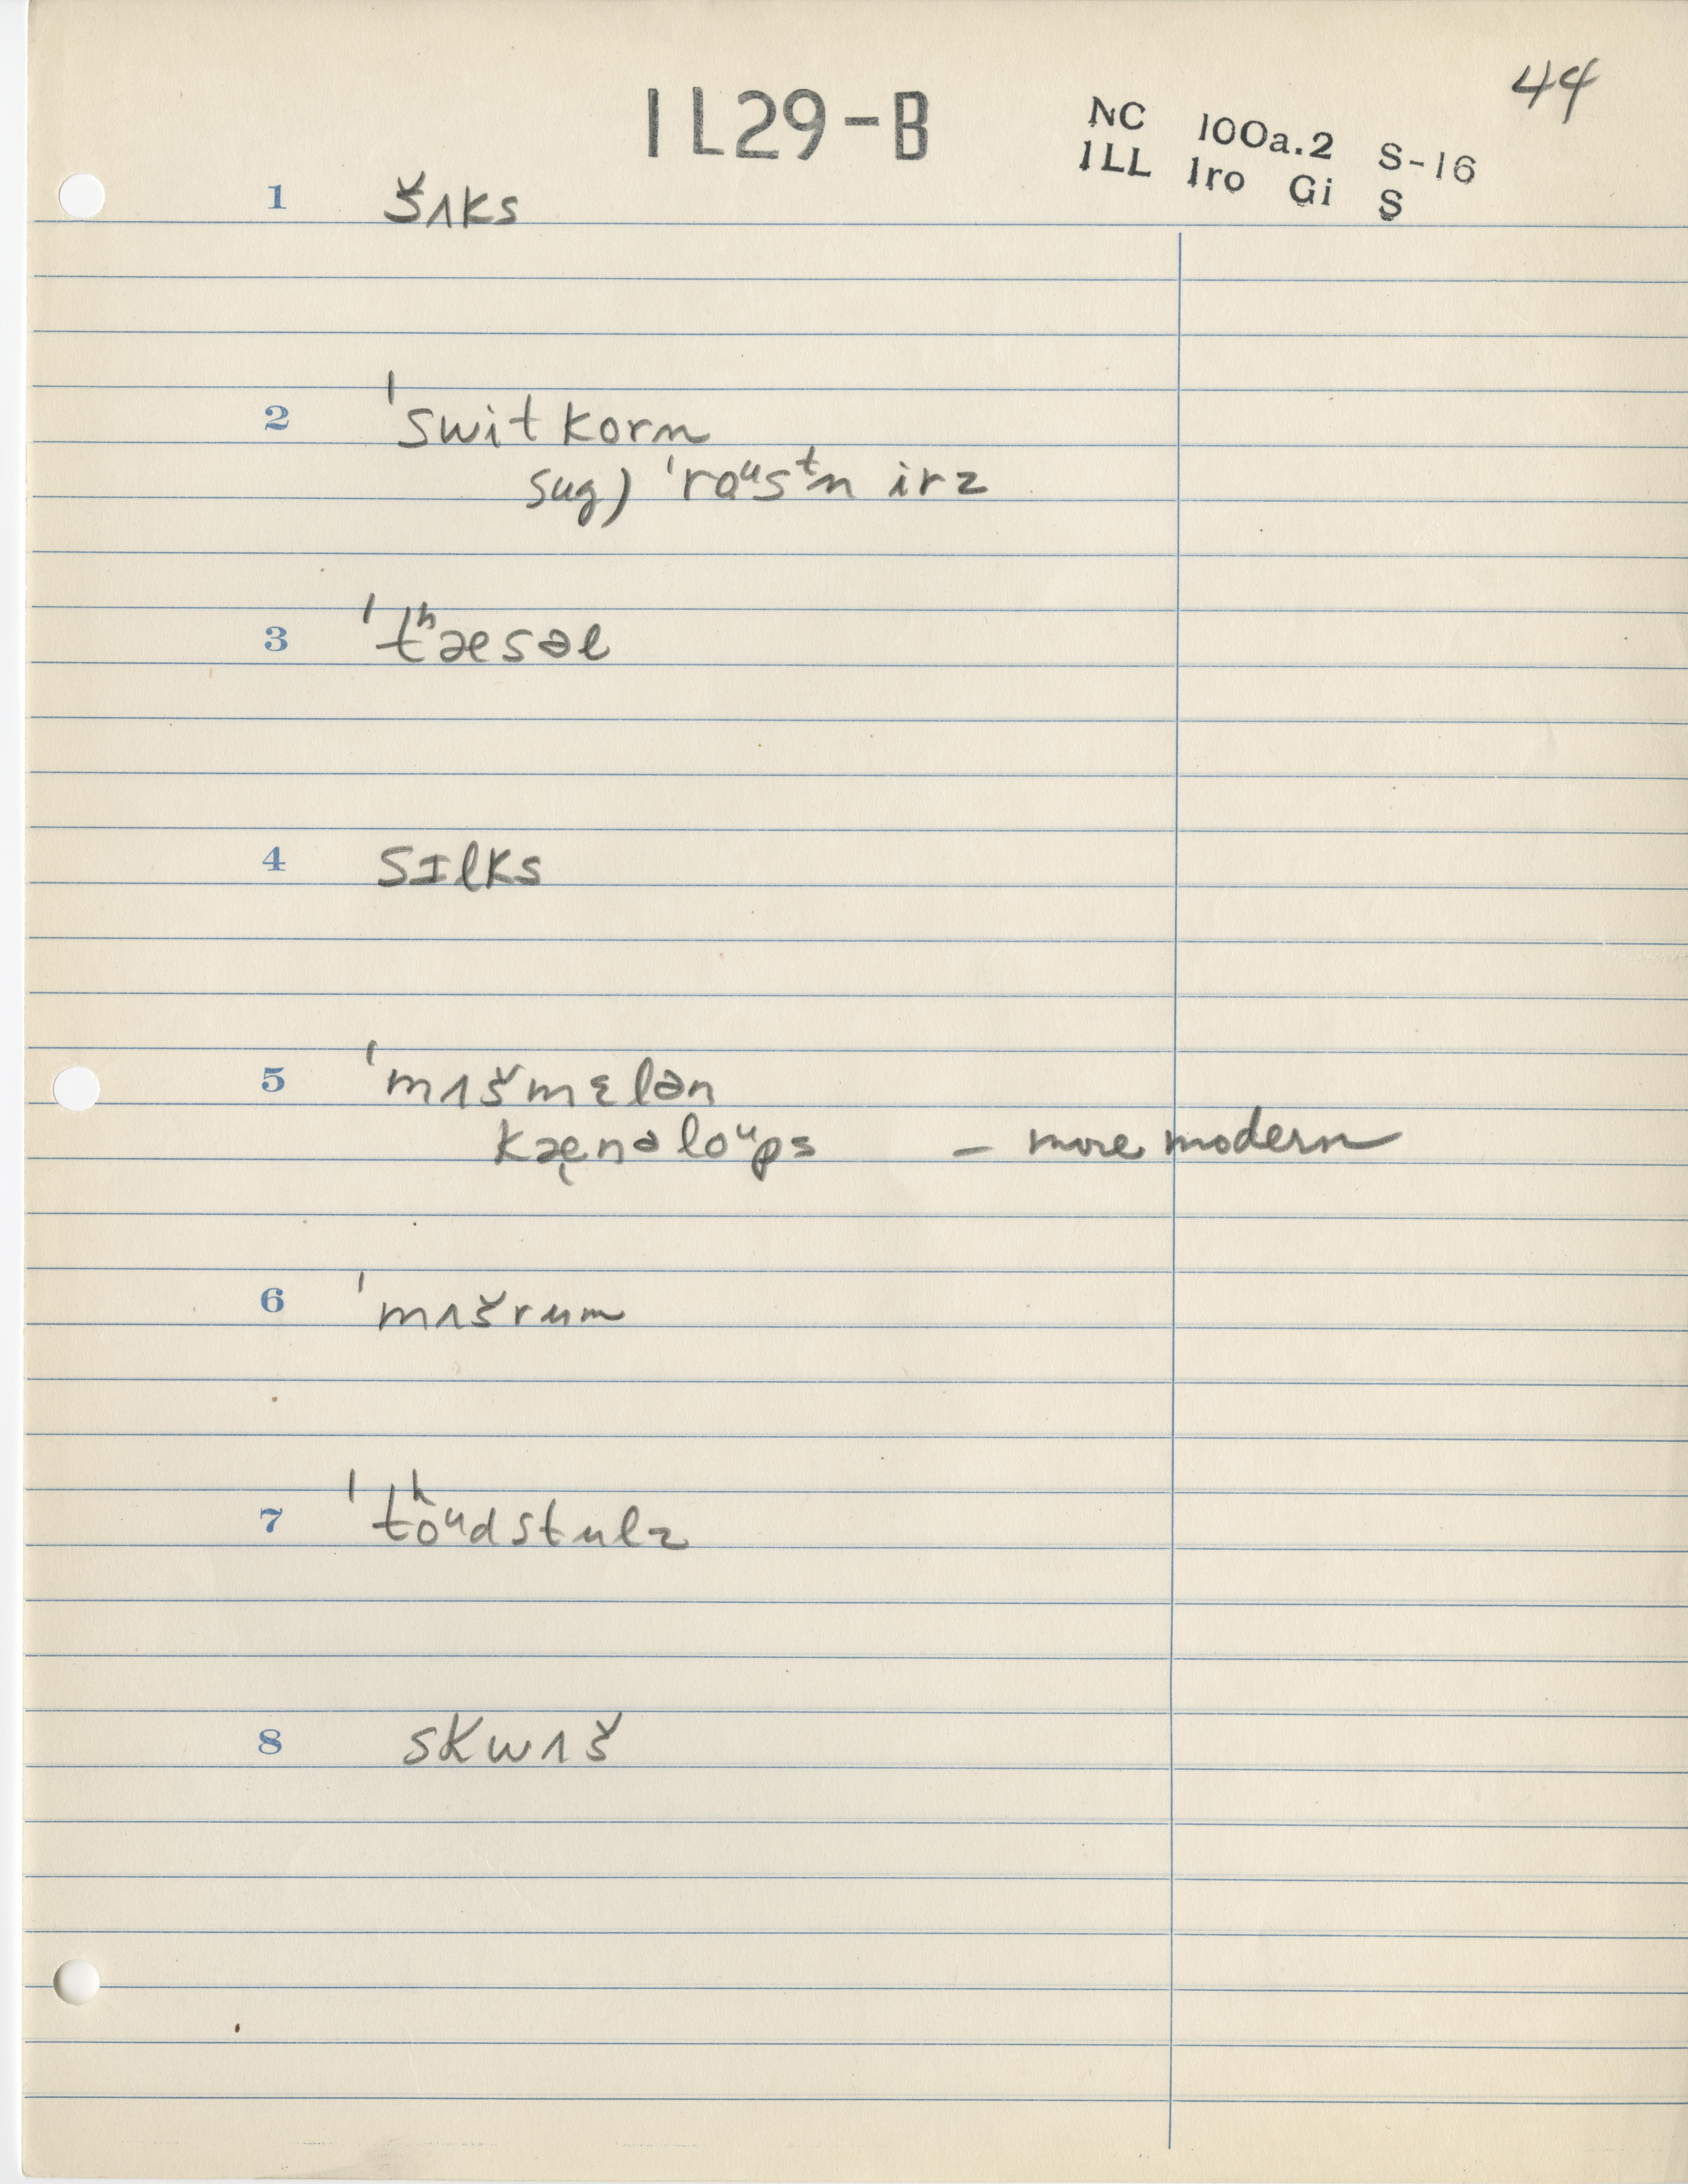 44
IL29-B
NC 100a.2 S-16
ILL Iro Gi S
1 šʌks
2 ˈswit korn
sug) ˈroᵘsᵗn irz
3 ˈtʰæsəl
4 sɪlks
5 ˈmʌšmɛlən
kæ̨nəloᵘps – more modern
6 ˈmʌšrum
7 ˈtʰoᵘdstulz
8 skwʌš